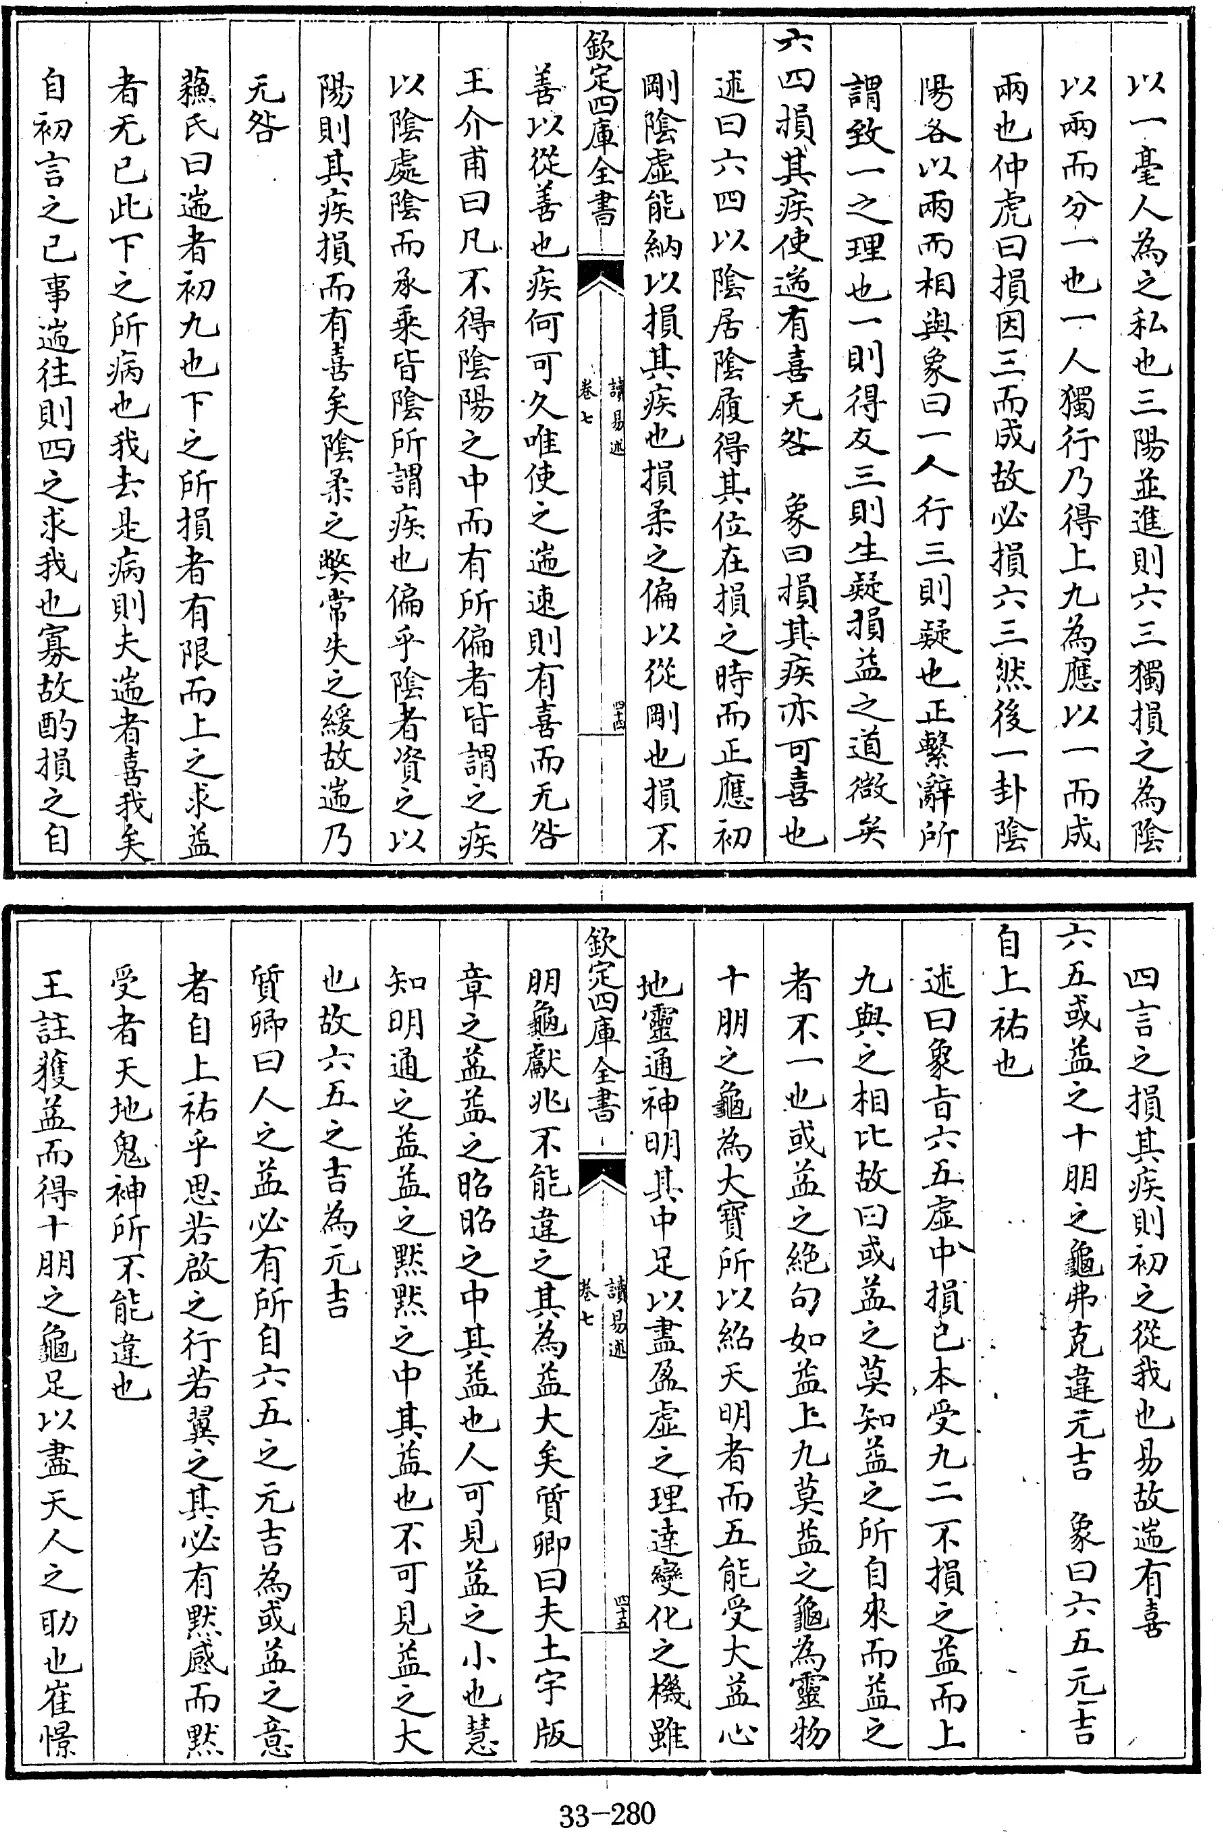 以一毫人為之私也三陽並進則六三獨損之為陰
以兩而分一也一人獨行乃得上九為應以一而成
兩也仲虎曰損因三而成故必損六三然後一卦陰
陽各以兩而相與象曰一人行三則疑也正繫辭所
謂致一之理也一則得友三則生疑損益之道微矣
六四損其疾使遄有喜无咎 象曰損其疾亦可喜也
述曰六四以陰居陰履得其位在損之時而正應初
剛陰虛能納以損其疾也損柔之偏以從剛也損不
欽定四庫全書
讀易述
卷七
四十四
善以從善也疾何可久唯使之遄速則有喜而无咎
王介甫曰凡不得陰陽之中而有所偏者皆謂之疾
以陰處陰而承乘皆陰所謂疾也偏乎陰者資之以
陽則其疾損而有喜矣陰柔之弊常失之緩故遄乃
无咎
蘓氏曰遄者初九也下之所損者有限而上之求益
者无已此下之所病也我去是病則夫遄者喜我矣
自初言之已事遄往則四之求我也寡故酌損之自
四言之損其疾則初之從我也易故遄有喜
六五或益之十朋之龜弗克違元吉 象曰六五元吉
自上祐也
述曰象旨六五虛中損已本受九二不損之益而上
九與之相比故曰或益之莫知益之所自來而益之
者不一也或益之絕句如益上九莫益之龜為靈物
十朋之龜為大寶所以紹天明者而五能受大益心
地靈通神明其中足以盡盈虛之理達變化之機雖
欽定四庫全書
讀易述
卷七
四十五
朋龜獻兆不能違之其為益大矣質卿曰夫土宇版
章之益益之昭昭之中其益也人可見益之小也慧
知明通之益益之默默之中其益也不可見益之大
也故六五之吉為元吉
質卿曰人之益必有所自六五之元吉為或益之意
者自上祐乎思若啟之行若翼之其必有默感而默
受者天地鬼神所不能違也
王註獲益而得十朋之龜足以盡天人之助也崔憬
33-280